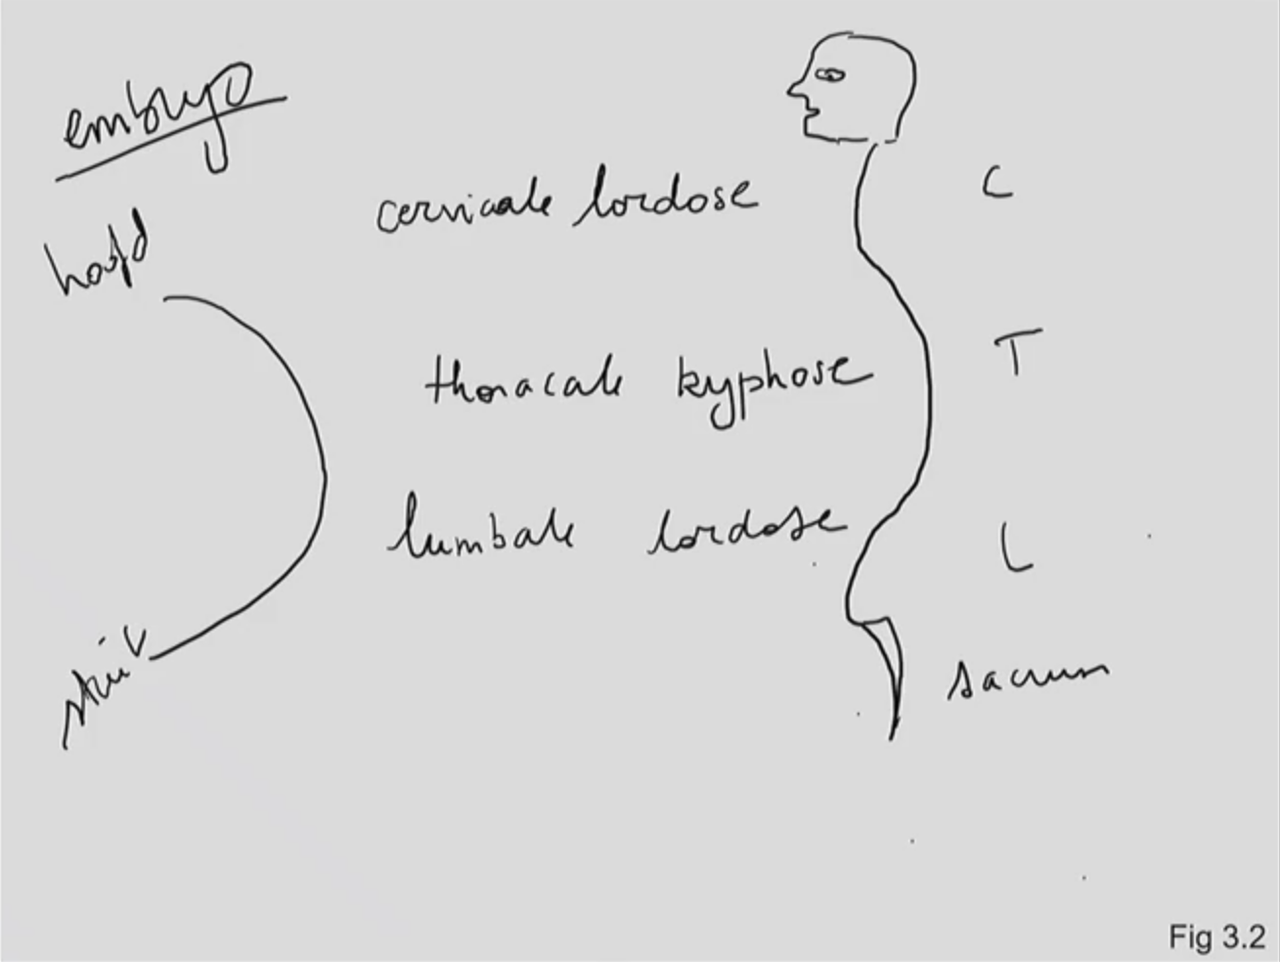 embryo
hoofd
cervicale lordose
C
thoracale kyphose
T
lumbale lordose
L
stuit
sacrum
Fig 3.2